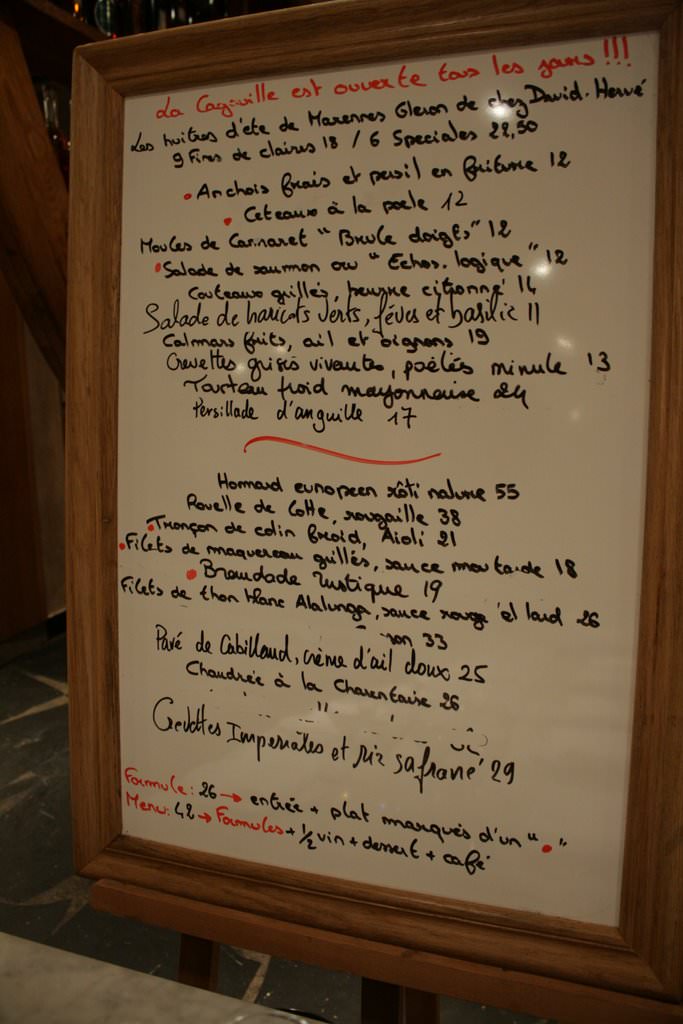 La Cagouille est ouverte tous les jours !!!
Les huitres d'été de Marennes Oleron de chez David-Hervé
9 Fines de claires 18 / 6 Speciales 22,50
• Anchois frais et persil en friture 12
• Ceteaux à la poele 12
Moules de Carnaret "Brule doigts" 12
• Salade de saumon ou "Echos. logique" 12
Couteaux grillés, beurre citronné 14
Salade de haricots verts, fèves et basilic 11
Calmars frits, ail et oignons 19
Crevettes grises vivantes, poëlés minute 13
Tourteau froid mayonnaise 24
Persillade d'anguille 17
Hommard europeen rôti nature 55
Rouelle de Lotte, rougaille 38
• Tronçon de colin froid, Aioli 21
• Filets de maquereau grillés, sauce moutarde 18
• Brandade Rustique 19
Filets de thon blanc Alalunga, sauce rouge et lard 26
33
Pavé de Cabillaud, crème d'ail doux 25
Chaudrée à la Charentaise 26
Crevettes Imperiales et riz safrané 29
Formule : 26 → entrée + plat marqués d'un " • "
Menu : 42 → Formules + ½ vin + dessert + café